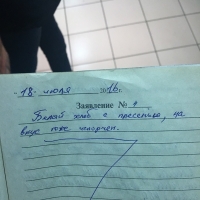 "18" июля 2016г.
Заявление № 4
Белый хлеб с плесенью, на
вкус тоже испорчен.